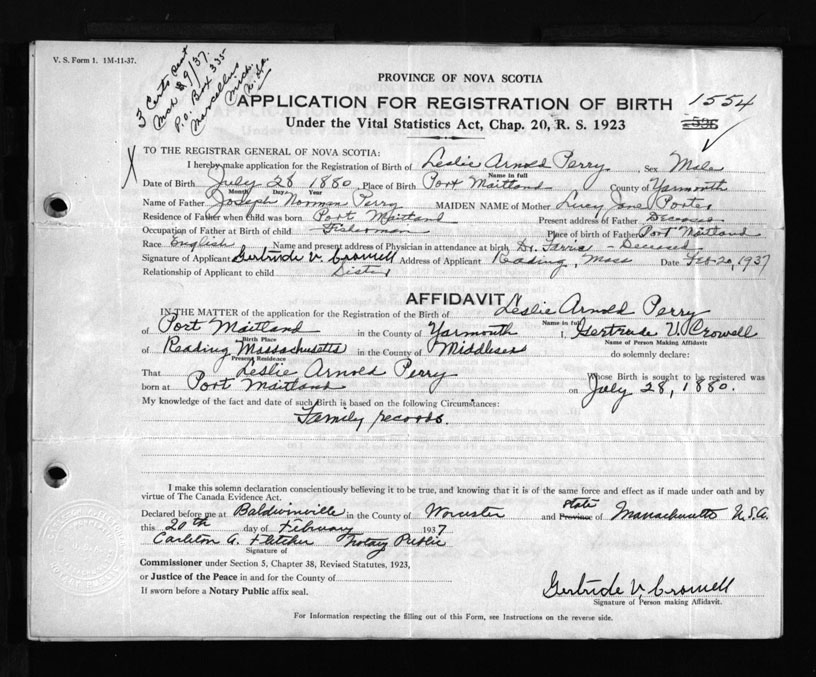 V. S. Form 1. 1M-11-37.
3 Certs sent
Mch 8, 9/37.
P.O. Box 335
Marcellus
Mich.
PROVINCE OF NOVA SCOTIA
APPLICATION FOR REGISTRATION OF BIRTH 1554
Under the Vital Statistics Act, Chap. 20, R. S. 1923
X TO THE REGISTRAR GENERAL OF NOVA SCOTIA:
I hereby make application for the Registration of Birth of Leslie Arnold Perry Sex Male
Name in full
Date of Birth July 28 1880 Place of Birth Port Maitland County of Yarmouth
Month Day Year
Name of Father Joseph Norman Perry MAIDEN NAME of Mother Lucy Jane Porter
Residence of Father when child was born Port Maitland Present address of Father Deceased
Occupation of Father at Birth of child Fisherman Place of birth of Father Port Maitland
Race English Name and present address of Physician in attendance at birth Dr. - Deceased
Signature of Applicant Gertrude V Crowell Address of Applicant Reading, Mass Date Feb-20, 1937
Relationship of Applicant to child Sister
AFFIDAVIT
IN THE MATTER of the application for the Registration of the Birth of Leslie Arnold Perry
Name in full
of Port Maitland in the County of Yarmouth I, Gertrude V. Crowell
Birth Place Name of Person Making Affidavit
of Reading Massachusetts in the County of Middlesex do solemnly declare:
Present Residence
That Leslie Arnold Perry Whose Birth is sought to be registered was
born at Port Maitland on July 28, 1880.
My knowledge of the fact and date of such Birth is based on the following Circumstances:
Family records.
I make this solemn declaration conscientiously believing it to be true, and knowing that it is of the same force and effect as if made under oath and by
virtue of The Canada Evidence Act.
Declared before me at Baldwinville in the County of Worcester and Province of state Massachusetts U.S.A.
this 20th day of February 1937
Carleton A. Fletcher Notary Public
Signature of
Commissioner under Section 5, Chapter 38, Revised Statutes, 1923,
or Justice of the Peace in and for the County of
If sworn before a Notary Public affix seal.
Gertrude V. Crowell
Signature of Person making Affidavit.
For Information respecting the filling out of this Form, see Instructions on the reverse side.